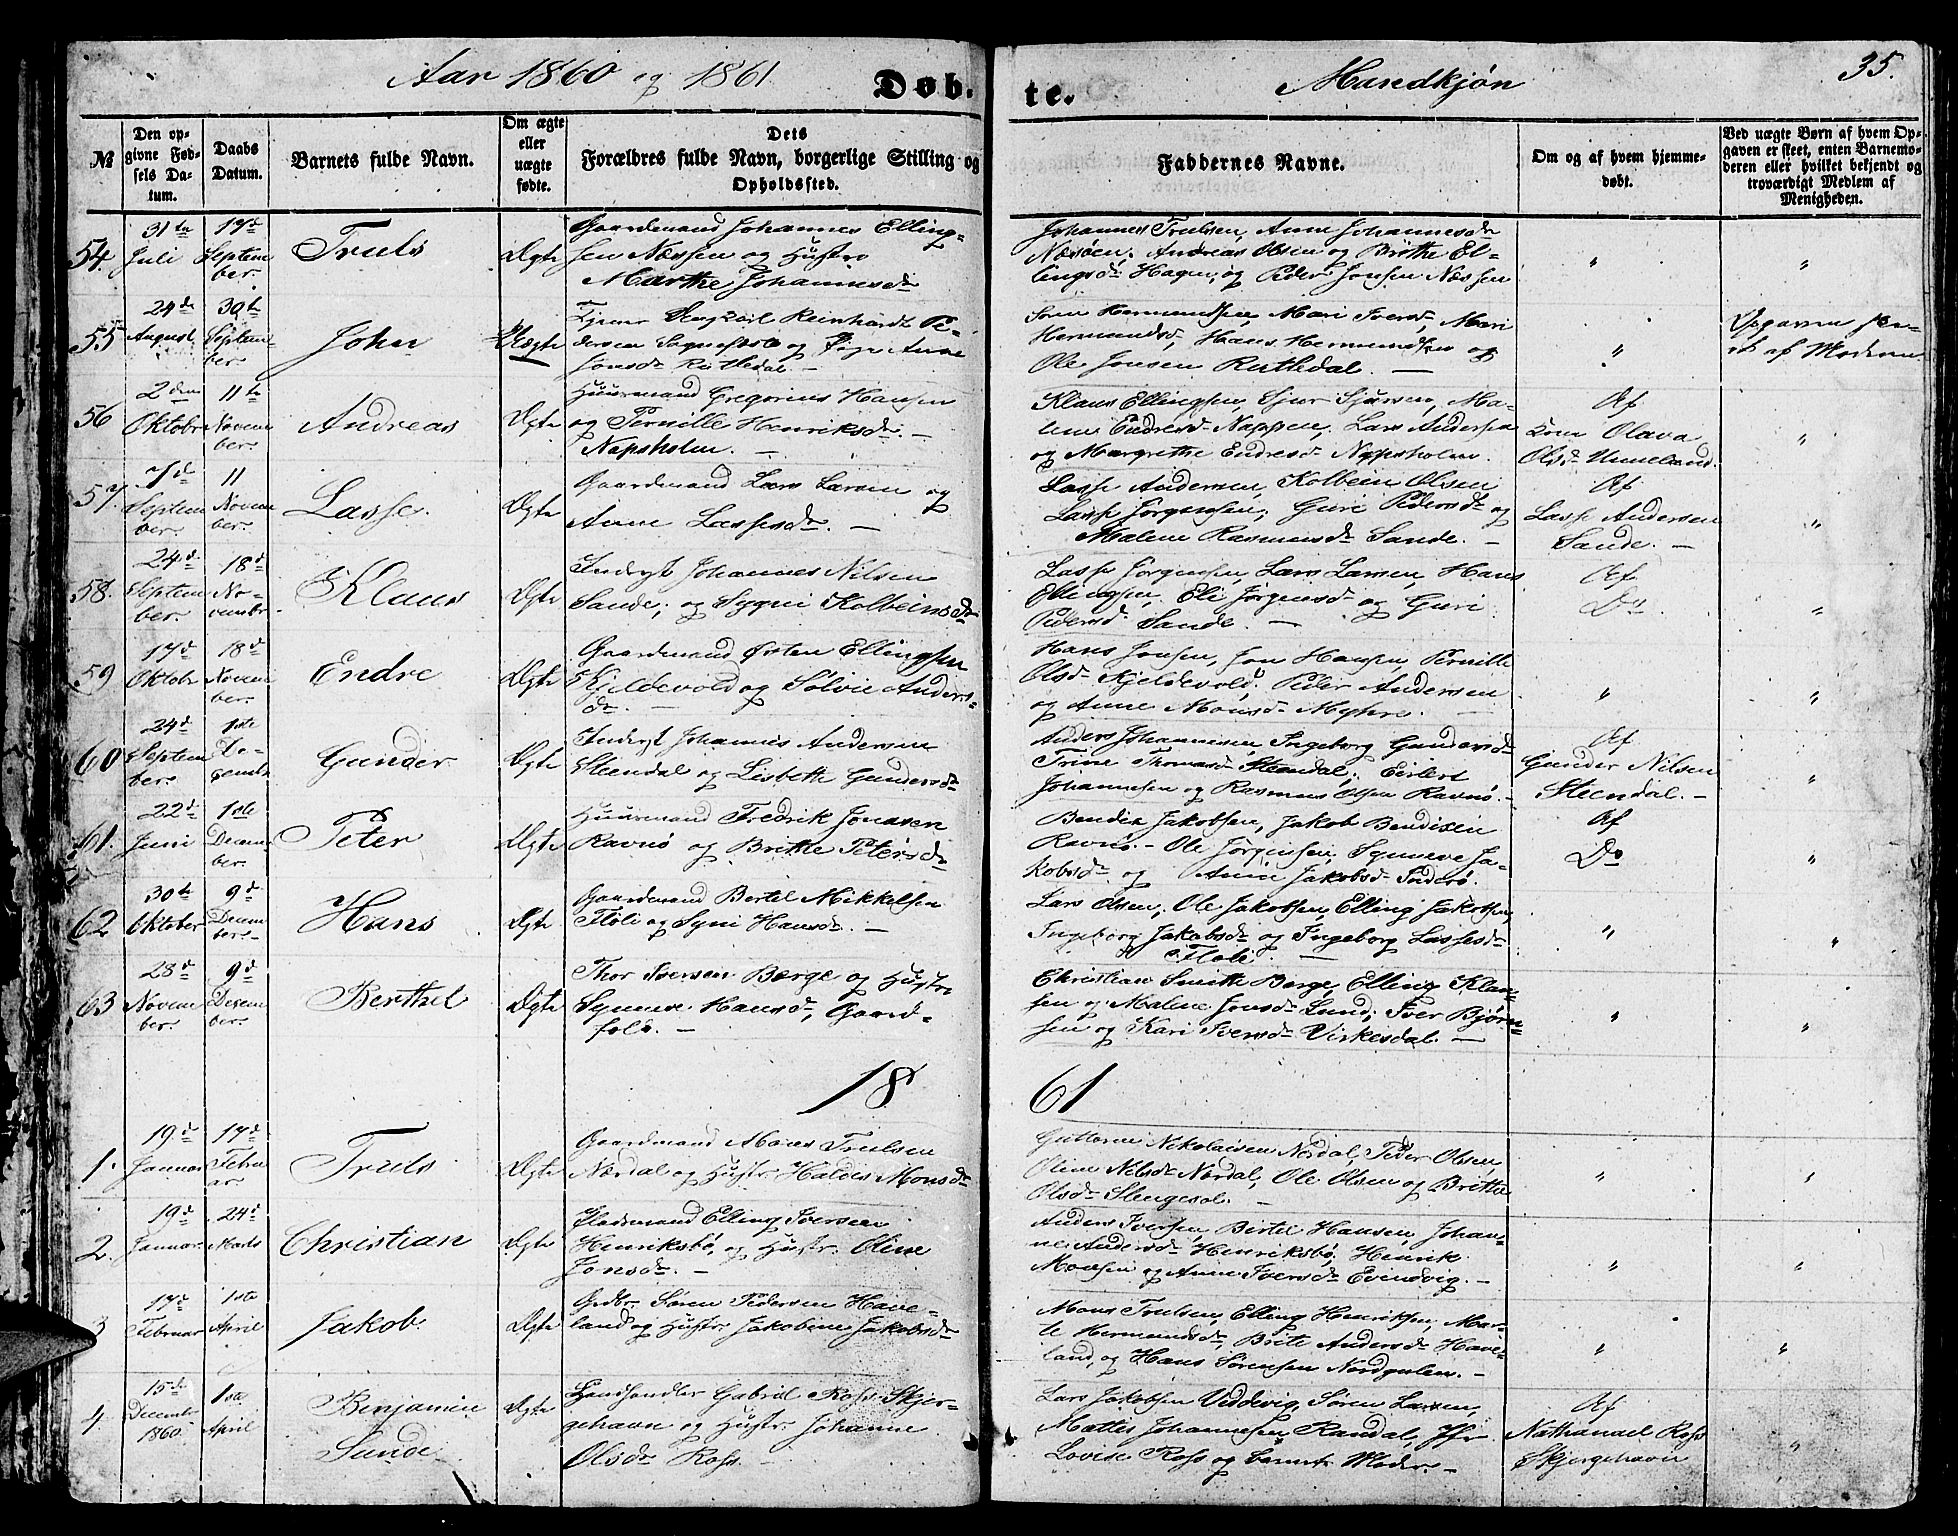 Aar 1860 og 1861
Døb-
te.
Mandkjøn
35.
№
Den op-
givne Fød-
sels Da-
tum.
Daabs
Datum.
Barnets fulde Navn.
Om ægte
eller
uægte
fødte.
Dets
Forældres fulde Navn, borgerlige Stilling og
Opholdssted.
Faddernes Navne.
Om og af hvem hjemme-
døbt.
Ved uægte Børn af hvem Op-
gaven er skeet, enten Barnemo-
deren eller hvilket bekjendt og
troværdigt Medlem af
Menigheden.
54.
31te
Juli
17d
Septem
ber.
Truls
Ægte
Gaardmand Johannes Elling-
sen Næssen og Hustro
Marthe Johannesdr
Johannes Trulsen, Anne Johannesdr
Næsøen, Andreas Olsen og Brithe El-
lingsdr Hagen, og Peder Jonsen Næssen
"
"
55
24de
August
30te
Septem
ber.
John
Uægte
Reinhardt Pe-
dersen og Pige Anne
Jonsdr Ruthedal. —
Hermundsen, Mari Iversdr, Mari
Hermundsdr, Hans Hermundsen og
Ole Jonsen Ruthedal. —
"
Opgaven
af Moderen
56
2den
Oktobr
11te
Novem
ber.
Andreas
Ægte
Huusmand Gregorius Hansen
og Pernille Henriksdr. —
Napsholm. —
Klaus Ellingsen, Sjur Sjursen, Ma-
lene Endresdr Nappen, Lars Andersen
og Margrethe Endresdr Napsholm.
Af
Kone Olava
Olsdr
"
57.
7d
Septem
ber.
11
Novem
ber.
Lasse.
Ægte
Gaardmand Lars Larsen og
Anne Lassesdr. —
Lasse Andersen, Kolbein Olsen
Lasse Jørgensen, Guri Pedersdr og
Malene Rasmusdr Sande. —
Af
Lasse Andersen
Sande. —
"
58.
24d.
Septem
ber.
18d
No-
vembr.
Klaus
Ægte
Inderst Johannes Nilsen
Sande, og Sygni Kolbeinsdr
Lasse Jørgensen, Lars Larsen, Hans
Ellingsen, Eli Jørgensdr og Guri
Pedersdr Sande. —
Af
Do
"
59
17d
Oktobr
18d
Novem
ber.
Endre
Ægte
Gaardmand Østen Ellingsen
Kjeldevold og Sølvie Anders-
dr. —
Hans Jonsen, Jon Hansen, Pernille
Olsdr Kjeldevold, Peder Andersen
og Anne Monsdr Myhre. —
"
"
60
24d
Septem
ber.
1ste
De-
cembr
Gunder
Ægte
Inderst Johannes Andersen
Steendal og Lisbeth Gundersdr
Anders Johannesen, Ingeborg Gundersdr
Trine Thomasdr Steendal, Eilert
Johannesen og Rasmus Olsen Ravnø. —
Af
Gunder Nilsen
Steendal. —
"
61.
22d
Juni
1ste
Decem
ber.
Peter
Ægte
Huusmand Fredrik Jonasen
Ravnø og Brithe Petersdr
Bendix Jakobsen, Jakob Bendixen
Ravnø. — Ole Jørgensen, Synneve Ja-
kobsdr og Anne Jakobsdr Inderø.
Af
Do
"
62
30te
Oktober
9d
Decem
ber. —
Hans
Ægte
Gaardmand Bertel Mikkelsen
Floli og Syni Hansdr. —
Lars Olsen, Ole Jakobsen, Elling Jakobsen,
Ingeborg Jakobsdr og Ingeborg Lassesdr
Floli. —
"
"
63
28d
Novem
ber.
9d
Decem
ber.
Berthel
Ægte
Thor Iversen Berge og Hustro
Synneve Hansdr, Gaard-
folk. —
Christian Smith Berge, Elling Klau-
sen og Malene Jonsdr Lund, Iver Bjørn-
sen og Kari Iversdr Virkesdal. —
"
"
18
61
1.
19d
Januar
17d
Febru
ar.
Truls
Ægte
Gaardmand Mons Trulsen
Nordal og Hustr. Haldis Monsdr
Guttorm Nikolaisen Nordal, Peder Olsen
Oline Nilsdr Nordal, Ole Olsen og Brithe
Olsdr Slengesol. —
"
"
2.
19d
Januar.
24d
Marts
Christian
Ægte
Pladsmand Elling Iversen
Henriksbø, og Hustr. Oline
Jonsdr. —
Anders Iversen, Bertel Hansen, Johan-
ne Andersdr Henriksbø, Henrik
Monsen og Anne Iversdr Evindvig. —
"
"
3
17d
Februar
1ste
April
Jakob.
Ægte
Grdbr. Søren Pedersen Have-
land og Hustr. Jakobine Jakobsdr
Mons Trulsen, Elling Henriksen, Mar-
te Hermundsdr, Brite Andersdr Have-
land, og Hans Sørensen Nordgulen. —
"
"
4.
15de
Decembr
1860.
1ste
April
Benjamin
Sande
Ægte
Landhandler Gabriel Ross Skjer-
gehavn og Hustr. Johanne
Olsdr Ross. —
Lars Jakobsen Viddevig, Søren Larsen,
Mattis Johannesen Randal, Jfr
Lovise Ross og Barnets Moder. —
Af
Nathanael Ross
Skjergehavn
"